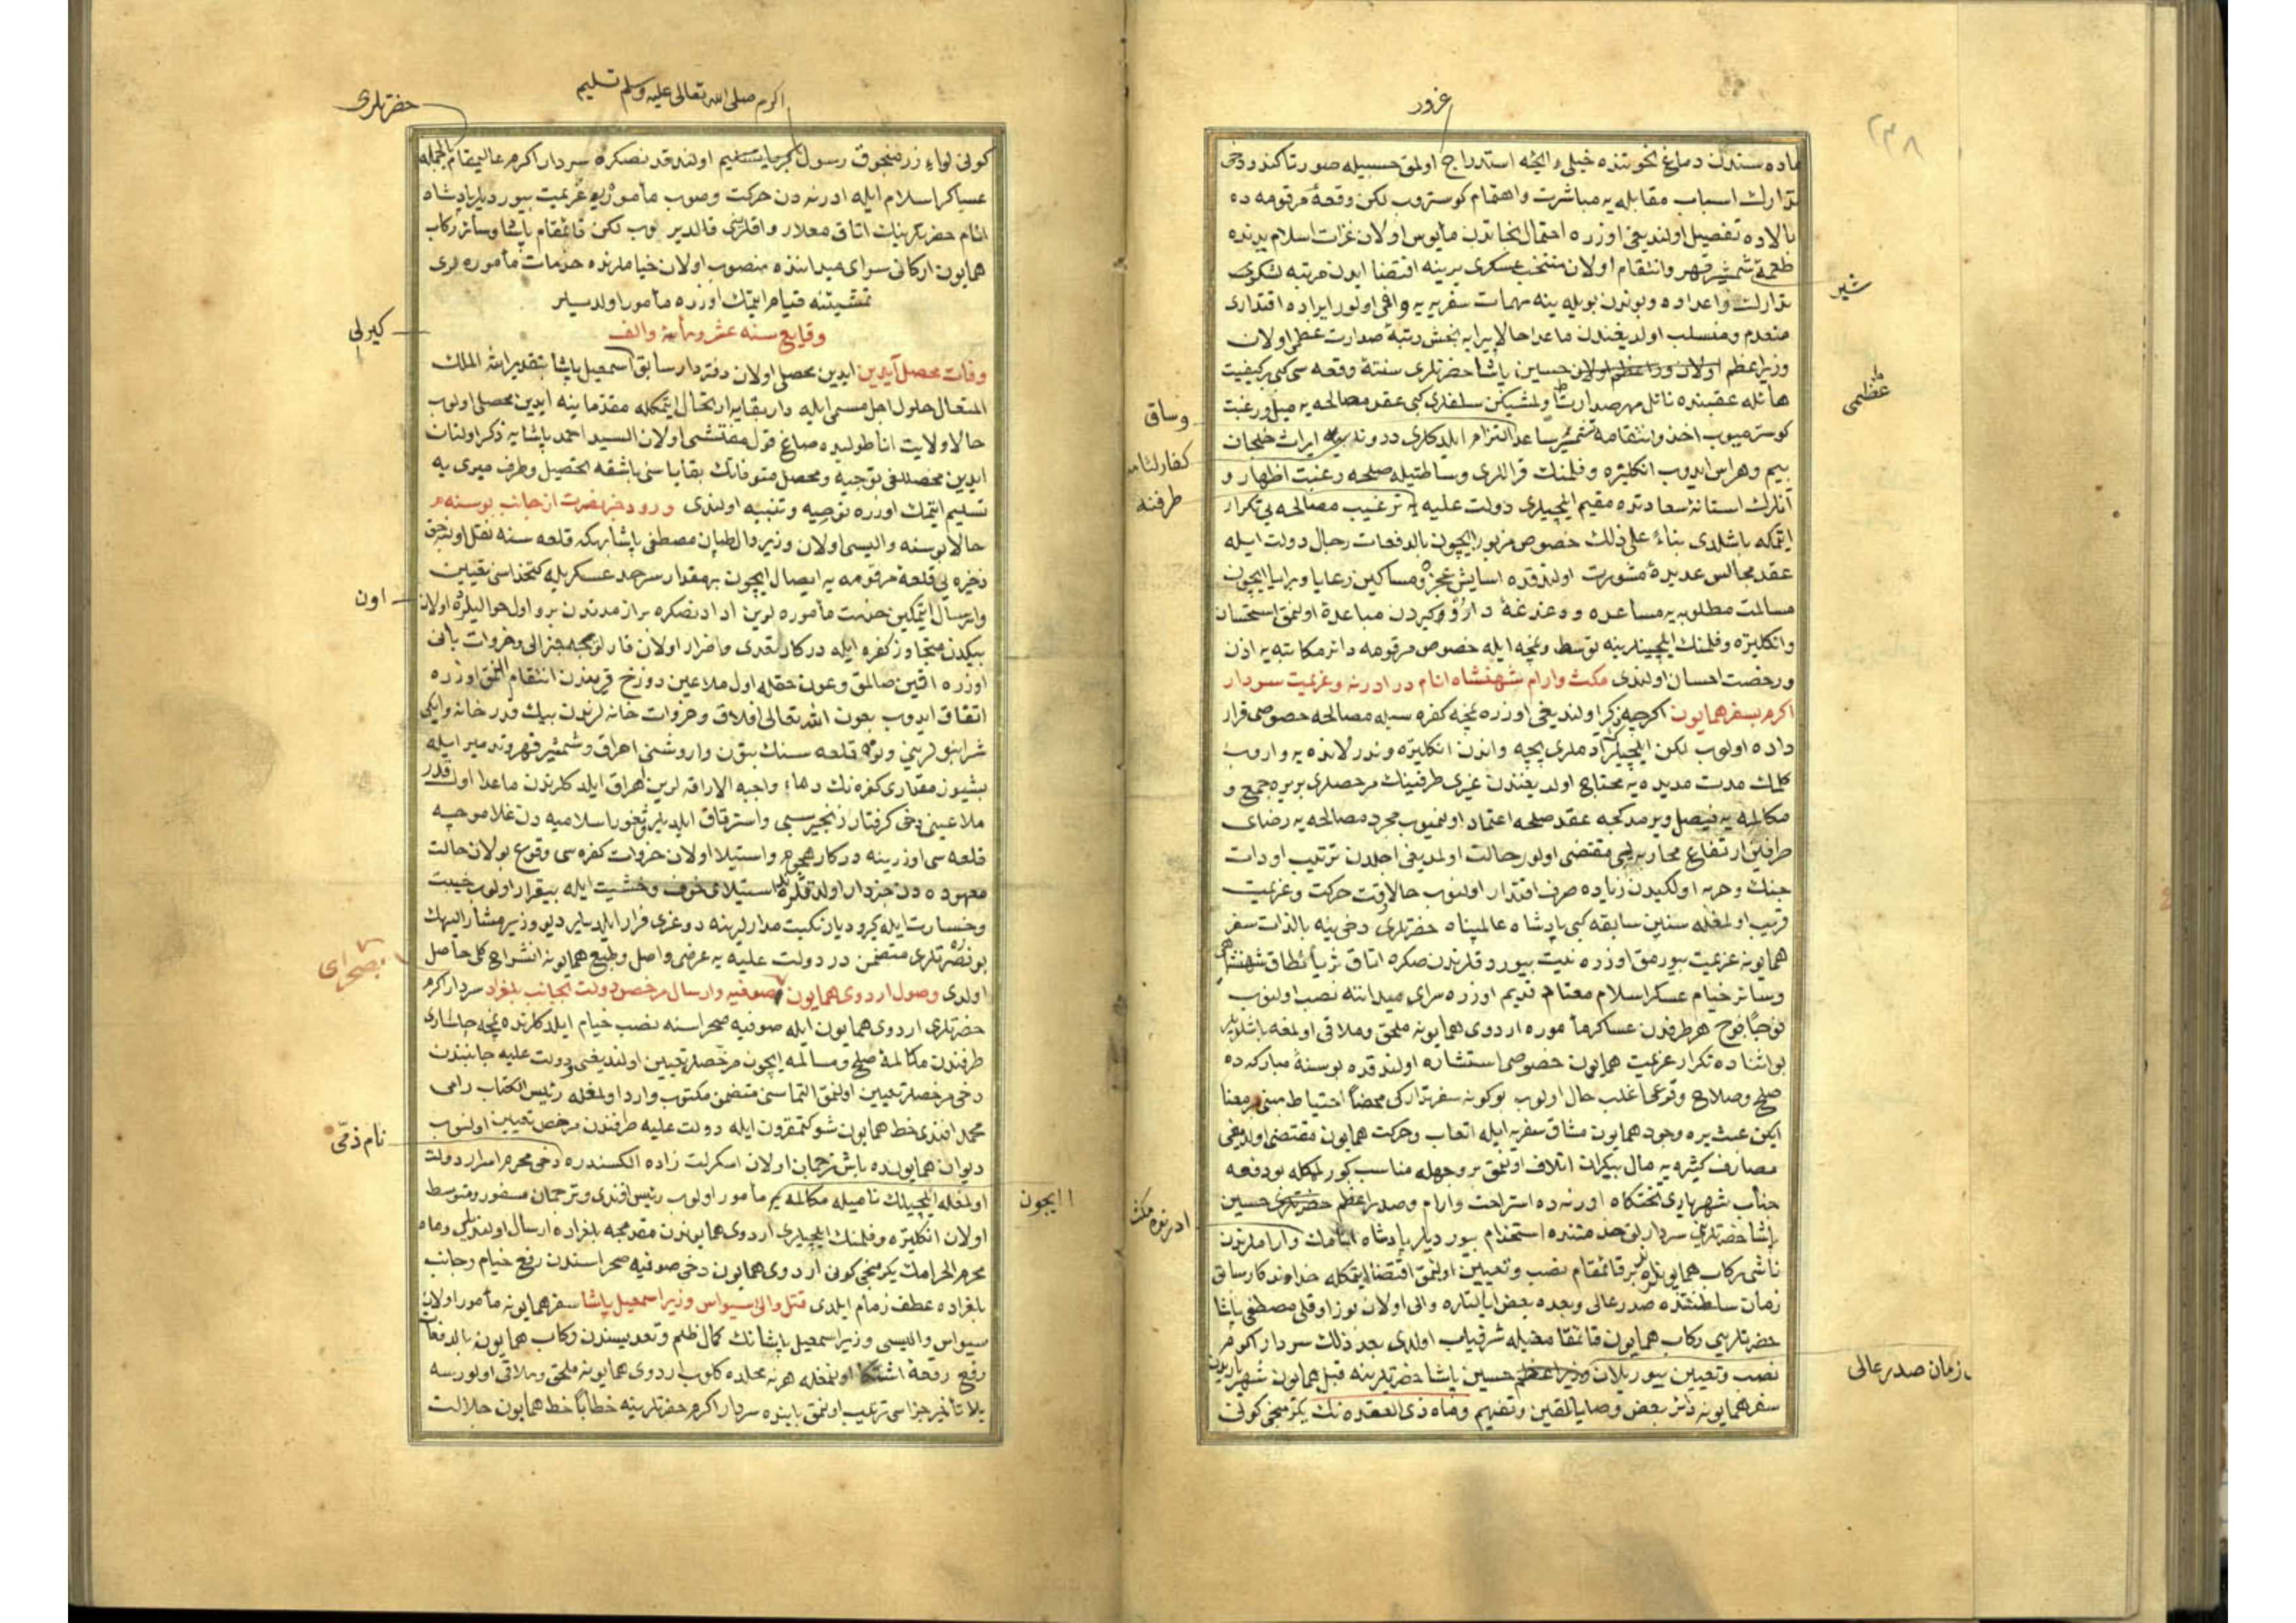 غرور
٢٣٨
ماده سندن دماغ نخوتنده خيلی اولمق حسبيله صورتا كندو دخی
تدارك اسباب مقابله يه مباشرت واهتمام كوستروب لكن وقعهٔ مرقومه ده
بالاده تفصيل اولنديغی اوزره احتمال نجاتدن مأيوس اولان غزات اسلام يدنده
طعمهٔ شمشير قهر وانتقام اولان منتخب عسكری يرينه اقتضا ايدن مرتبه لشكری
تدارك واعداده وبوندن بويله ينه مهمات سفريه يه وافی اولور ايراده اقتداری
منعدم ومنسلب اولديغندن ماعدا حالا پيرايه بخش رتبهٔ صدارت عظمی اولان
وزير اعظم حسين پاشا حضرتلری سنتهٔ وقعه سی كبی بر كيفيت
هائله عقبنده نائل مهر صدارت سلفلری كبی عقد مصالحه يه ميل ورغبت
كوسترميوب اخذ وانتقامه تشمير ساعد التزام ايلدكلری درونلرينه ايراث خلجان
بيم وهراس ايدوب انكلتره وفلمنك قراللری وساطتيله صلحه رغبت اظهار و
آنلرك استانهٔ سعادتده مقيم ايلچيلری دولت عليه يه ترغيب مصالحه يی تكرار
ايتمكه باشلدی بناءً علی ذلك خصوص مزبور ايچون بالدفعات رجال دولت ايله
عقد مجالس عديدهٔ مشورت اولندقده اسايش عجزه ومساكين رعايا وبرايا ايچون
مسالمت مطلوبه يه مساعده ودغدغهٔ دار وكيردن مباعدة اولنمق استحسان
وانكلتره وفلمنك ايلچيلرينه توسط ونمچه ايله خصوص مرقومه دائر مكاتبه يه اذن
ورخصت احسان اولندی مكث وارام شهنشاه انام در ادرنه وعزيمت سردار
اكرم بسفر همايون اكرچه ذكر اولنديغی اوزره نمچه كفره سيله مصالحه خصوصی قرار
داده اولوب لكن ايلچيلرك آدملری بچه واندن انكلتره وندرلانده يه واروب
كلمك مدت مديده يه محتاج اولديغندن غيری طرفينك مرخصلری بر يره جمع و
مكالمه يه فيصل ويرمدكجه عقد صلحه اعتماد اولنميوب مجرد مصالحه يه رضای
طرفين ارتفاع محاربه يی مقتضی اولور حالت اولمديغی اجلدن ترتيب ادوات
جنك وحربه اولكيدن زياده صرف اقتدار اولنوب حالا وقت حركت وعزيمت
قريب اولمغله سنين سابقه كبی پادشاه عالمپناه حضرتلری دخی ينه بالذات سفر
همايونه عزيمت بيورمق اوزره نيت بيوردقلرندن صكره اتاق ثريا نطاق شهنشاهی
وسائر خيام عسكر اسلام معتاد قديم اوزره سرای ميداننه نصب اولنوب
فوجًا فوج هر طرفدن عساكر مأموره اردوی همايونه ملحق وملاقی اولمغه باشلديلر
بو اثناده تكرار عزيمت همايون خصوصی استشاره اولندقده بو سنهٔ مباركه ده
صلح وصلاح وقوعی اغلب حال اولوب بو كونه سفر تداركی محضًا احتياط مبنی بر معنا
ايكن عبث يره وجود همايون مشاق سفريه ايله اتعاب وحركت همايون مقتضی اولديغی
مصارف كثيره يه مال بيكران اتلاف اولنمق بر وجهله مناسب كورلمكله بو دفعه
جناب شهرياری تختكاه ادرنه ده استراحت وارام وصدر اعظم حضرتلری حسين
پاشا حضرتلرين سردارلق خدمتنده استخدام بيورديلر پادشاه انامك وارامملرندن
ناشی ركاب همايونلرنده بر قائمقام نصب وتعيين اولنمق اقتضا ايتمكله خداوندكار سابق
زمان سلطنتنده صدر عالی وبعده بعض ايالتلره والی اولان بوزاوقلی مصطفی پاشا
حضرتلری ركاب همايون قائمقاملغيله شرفياب اولدی بعد ذلك سردار اكرم
نصب وتعيين بيوريلان وزير اعظم حسين پاشا حضرتلرينه قبل همايون شهرياريدن
سفر همايونه دائر بعض وصايا تلقين وتفهيم وماه ذی القعده نك يكرمنجی كونی
شير
عظمی
وساق
طرفنه
ادرنه ده مكث
زمان صدر عالی
اكرم صلی الله تعالی عليه وسلم تسليم
حضرتلری
كونی لواء زرمنجوق رسول تسليم اولندقدنصكره سردار اكرم عاليمقام بالجمله
عساكر اسلام ايله ادرنه دن حركت وصوب مأموره عزيمت بيورديلر پادشاه
انام حضرتلرينك اتاق معلالر قالديرلوب لكن قائمقام پاشا وسائر ركاب
همايون اركانی سرای ميداننده منصوب اولان خيامملرنده خدمات مأموره لری
تمشيتنه قيام ايتمك اوزره مأمور اولديلر
وقايع سنه عشر ومأة والف
وفات محصل آيدين ايدين محصلی اولان دفتردار سابق اسمعيل پاشا بتقدير الله الملك
المتعال حلول اجل مسمی ايله دار بقايه ارتحال ايتمكله مقدما ينه ايدين محصلی اولوب
حالا ولايت اناطوليده صاغ قول مفتشی اولان السيد احمد پاشايه ذكر اولنان
ايدين محصللغی توجيه ومحصل متوفانك بقاياسنی باشقه تحصيل وطرف ميری يه
تسليم ايتمك اوزره توصيه وتنبيه اولندی ورود خبر نصرت از جانب بوسنه
حالا بوسنه واليسی اولان وزير دال طبان مصطفی پاشا بهكه قلعه سنه نقل اولنه جق
ذخيره يی قلعهٔ مرقومه يه ايصال ايچون بر مقدار سرحد عسكريله كتخداسی تعيين
وارسال ايتمكين خدمت مأموره لرين ادادنصكره براز مدتدن برو اول حواليلرده اولان
بيكدن متجاوز كفره ايله دركار تعدی واضرار اولان قارلوفجه جنرالی وخروات بانی
اوزره اقين صالمق وعون حقله اول ملاعين دوزخ قريندن انتقام المق اوزره
اتفاق ايدوب بعون الله تعالی افلاق وخروات خانه لرندن بيك قدر خانه وايكی
قلعه سنك احراق وشمشير قهر وتدمير ايله
بشيوز مقداری كفره نك دماء واجبة الاراقه لرين اهراق ايلدكلرندن ماعدا اول قدر
ملاعينی دخی كرفتار زنجير سبی واسترقاق ايلديلر وثغور اسلاميه دن غلاموچه
قلعه سی اوزرينه دركار هجوم واستيلا اولان خروات كفره سی وقوع بولان حالت
معهوده دن خبردار اولدقلرنده استيلای خوف وخشيت ايله بيقرار اولوب خيبت
وخسارت ايله كيرو ديار نكبت مدارلرينه دوغری فرار ايلديلر ديو وزير مشار اليهك
بو نصرتلری متضمن در دولت عليه يه عرضی واصل وطبع همايونه انشراح كلی حاصل
اولدی وصول اردوی همايون بصوفيه وارسال مرخص دولت بجانب بلغراد سردار اكرم
حضرتلری اردوی همايون ايله صوفيه صحراسنه نصب خيام ايلدكلرنده نمچه چاساری
طرفندن مكالمهٔ صلح ومسالمه ايچون مرخصلر تعيين اولنديغی ودولت عليه جانبندن
دخی مرخصلر تعيين اولنمق التماسنی متضمن مكتوب وارد اولمغله رئيس الكتاب رامی
محمد افندی خط همايون شوكتمقرون ايله دولت عليه طرفندن مرخص تعيين اولنوب
ديوان همايونده باش ترجمان اولان اسكرلت زاده الكسندره دخی محرم اسرار دولت
اولمغله ايلچيلك ناميله مكالمه يه مأمور اولوب رئيس افندی وترجمان مسفور ومتوسط
اولان انكلتره وفلمنك ايلچيلری اردوی همايوندن مقدمجه بلغراده ارسال اولنديلر وماه
محرم الحرامك يكرمنجی كونی اردوی همايون دخی صوفيه صحراسندن رفع خيام وجانب
بلغراده عطف زمام ايلدی قتل والئ سيواس وزير اسمعيل پاشا سفر همايونه مأمور اولان
سيواس واليسی وزير اسمعيل پاشانك كمال ظلم وتعديسندن ركاب همايون بالدفعات
رفع رقعهٔ اشتكا اولنمغله هر نه محلده كلوب اردوی همايونه ملحق وملاقی اولورسه
بلا تأخير جزاسی ترتيب اولنمق بابنده سردار اكرم حضرتلرينه خطابًا خط همايون جلالت
كيرلی
اون
بصحرای
نام ذمی
ايچون